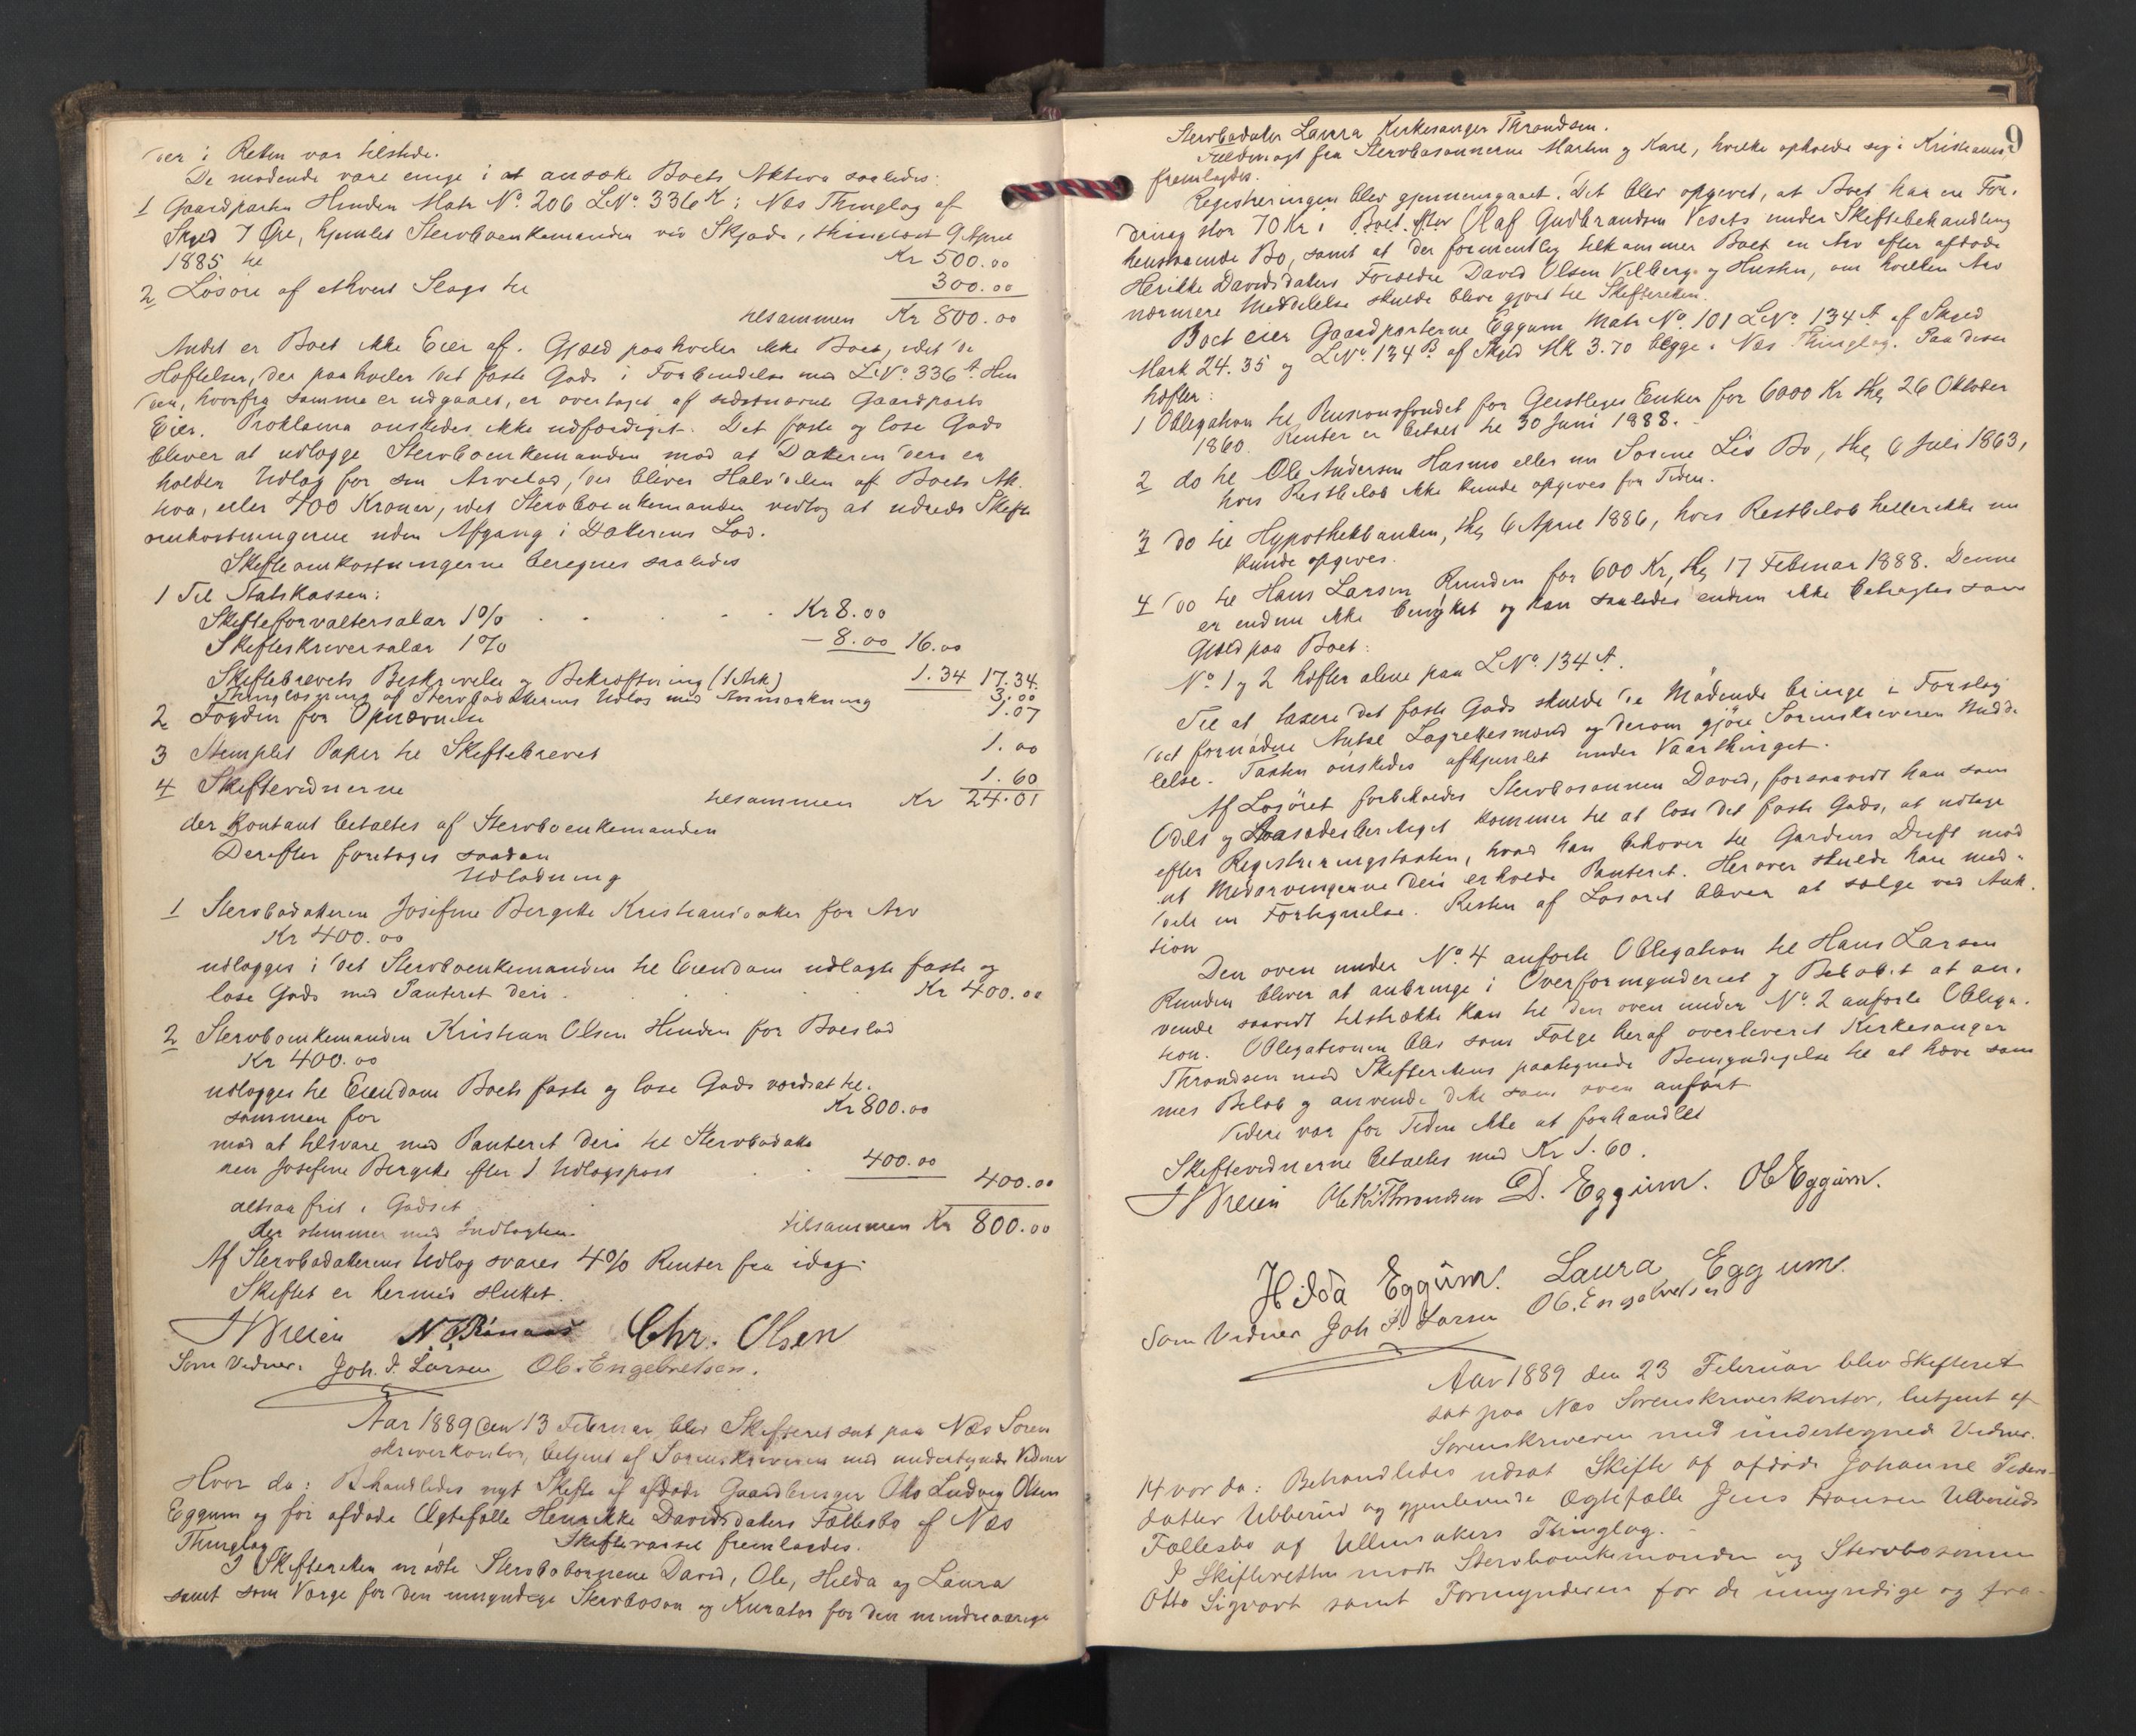 der i Retten var tilstede.
De mødende vare enige i at ansøke Boets Aktiva saaledes:
1 Gaardparten Hinden Matr No. 206 LNo. 336 K i Næs Thinglag af
Skyld 7 Øre, hjemlet Stervboenkemanden ved Skjøde, thinglæst 9 April
1885 til Kr 500.00
2 Løsøre af ethvert Slags til 300.00
tilsammen Kr 800.00
Andet er Boet ikke Eier af. Gjæld paahviler ikke Boet, idet de
Hæftelser, der paahviler det faste Gods i Forbindelse med LNo. 336 A. Hin
den, hvorfra samme er udgaaet, er overtaget af sidstnævnte Gaardparts
Eier. Proklama ønskedes ikke udfærdiget. Det faste og løse Gods
bliver at udlægge Stervboenkemanden mod at Datteren deri er
holder Udlæg for sin Arvelod, der bliver Halvdelen af Boets Ak.
tiva, eller 400 Kroner, idet Stervboenkemanden vedtog at udrede Skifte
omkostningerne uden Afgang i Datterens Lod.
Skifteomkostningerne beregnes saaledes
1 Til Statskassen:
Skifteforvaltersalær 1% Kr 8.00
Skifteskriversalær 1% – 8.00 16.00
Skiftebrevets Beskrivelse og Bekræftning (1 Ark) 1.34 17.34
Thinglæsning af Stervbodatterens Udlæg med Anmærkning 3.00
2 Fogden for Opnævnelse 1.07
3 Stemplet Papir til Skiftebrevet 1.00
4 Skiftevidnerne 1.60
tilsammen Kr 24.01
der kontant betaltes af Stervboenkemanden
Derefter foretoges saadan
Udlodning
1 Stervbodatteren Josefine Bergitte Kristiansdatter for Arv
Kr 400.00
udlægges i det Stervboenkemanden til Eiendom udlagte faste og
løse Gods med Panteret deri Kr 400.00
2 Stervboenkemanden Kristian Olsen Hinden for Boeslod
Kr 400.00
udlægges til Eiendom Boets faste og løse Gods værdsat til.
sammen for Kr 800.00
mod at tilsvare med Panteret deri til Stervbodatte
ren Josefine Bergitte efter 1 Udlægspost 400.00
altsaa frit i Godset 400.00
der stemmer med Indtægten. tilsammen Kr 800.00
Af Stervbodatterens Udlæg svares 4% Renter fra idag.
Skiftet er hermed sluttet.
Chr. Olsen
Som Vidner. Joh. P. Larsen Ol. Engebretsen.
Aar 1889 den 13 Februar blev Skifteret sat paa Næs Soren
skriverkontor, betjent af Sorenskriveren med undertegnede Vidner
Hvor da: Behandledes nyt Skifte af afdøde Gaardbruger Otto Ludvig Olsen
Eggum og før afdøde Ægtefælle Henrikke Davidsdatters Fællesbo af Næs
Thinglag
Skiftevarsel fremlagdes.
I Skifteretten mødte Stervbobørnene David, Ole, Hilda og Laura
samt som Værge for den umyndige Stervbosøn og Kurator for den mindreaarige
9
Stervbodatter Laura Kirkesanger Throndsen.
Fuldmagt fra Stervbosønnerne Martin og Karl, hvilke opholde sig i Kristiania
fremlagdes.
Registreringen blev gjennemgaaet. Det blev opgivet, at Boet har en For.
dring stor 70 Kr i Boet efter Olaf Gudbrandsen Vesets under Skiftebehandling
henstaaende Bo, samt at der formentlig tilkommer Boet en Arv efter afdøde
Henrikke Davidsdatters Forældre David Olsen Vilberg og Hustru, om hvilken Arv
nærmere Meddelelse skulde blive gjort til Skifteretten.
Boet eier Gaardparterne Eggum Matr No. 101 LNo. 134 A af Skyld
Mark 24.35 og LNo. 134 B af Skyld Mk 3.70 begge i Næs Thinglag. Paa disse
hæfter:
1 Obligation til Pensionsfondet for Geistliges Enker for 6000 Kr thgl 26 Oktober
1860. Renter er betalt til 30 Juni 1888.
2 do til Ole Andersen Hasmo eller nu Sorine Lis Bo, thgl 6 Juli 1863,
hvis Restbeløb ikke kunde opgives for Tiden.
3 do til Hypothekbanken, thgl 6 April 1886, hvis Restbeløb heller ikke nu
kunde opgives.
4 do til Hans Larsen Runden for 600 Kr, thgl 17 Februar 1888. Denne
er endnu ikke benyttet og kan saaledes endnu ikke betragtes som
Gjæld paa Boet.
No. 1 og 2 hæfter alene paa LNo. 134 A.
Til at taxere det faste Gods skulde de Mødende bringe i Forslag
det fornødne Antal Lagrettesmænd og derom gjøre Sorenskriveren Medde
lelse. Taxten ønskedes afhjemlet under Vaarthinget.
Af Løsøret forbeholdes Stervbosønnen David, forsaavidt han som
Odels og Aasædesberettiget kommer til at løse det faste Gods, at udtage
efter Registreringstaxten, hvad han behøver til Gardens Drift mod
at Medarvingerne deri erholde Panteret. Herover skulde han med=
dele en Fortegnelse. Resten af Løsøret bliver at sælge ved Auk.
tion
Den oven under No. 4 anførte Obligation til Hans Larsen
Runden bliver at anbringe i Overformynderiet og Beløbet at an.
vende saavidt tilstrække kan til den oven under No. 2 anførte Obliga.
tion. Obligationen blev som Følge heraf overleveret Kirkesanger
Throndsen med Skifterettens paategnede Bemyndigelse til at hæve sam
mes Beløb og anvende dette som oven anført
Videre var for Tiden ikke at forhandle
Skiftevidnerne betaltes med Kr 1.60.
Ole Kr Throndsen D. Eggum. Ol Eggum.
Hilda Eggum. Laura Eggum.
Som Vidner Joh P. Larsen Ol. Engebretsen
Aar 1889 den 23 Februar blev Skifteret
sat paa Næs Sorenskriverkontor, betjent af
Sorenskriveren med undertegnede Vidner.
Hvor da: Behandledes udsat Skifte af afdøde Johanne Peders-
datter Ubberud og gjenlevende Ægtefælle Jens Hansen Ubberuds
Fællesbo af Ullensakers Thinglag.
I Skifteretten mødte Stervboenkemanden og Stervbosønnen
Otto Sigvart samt Formynderen for de umyndige og fra-